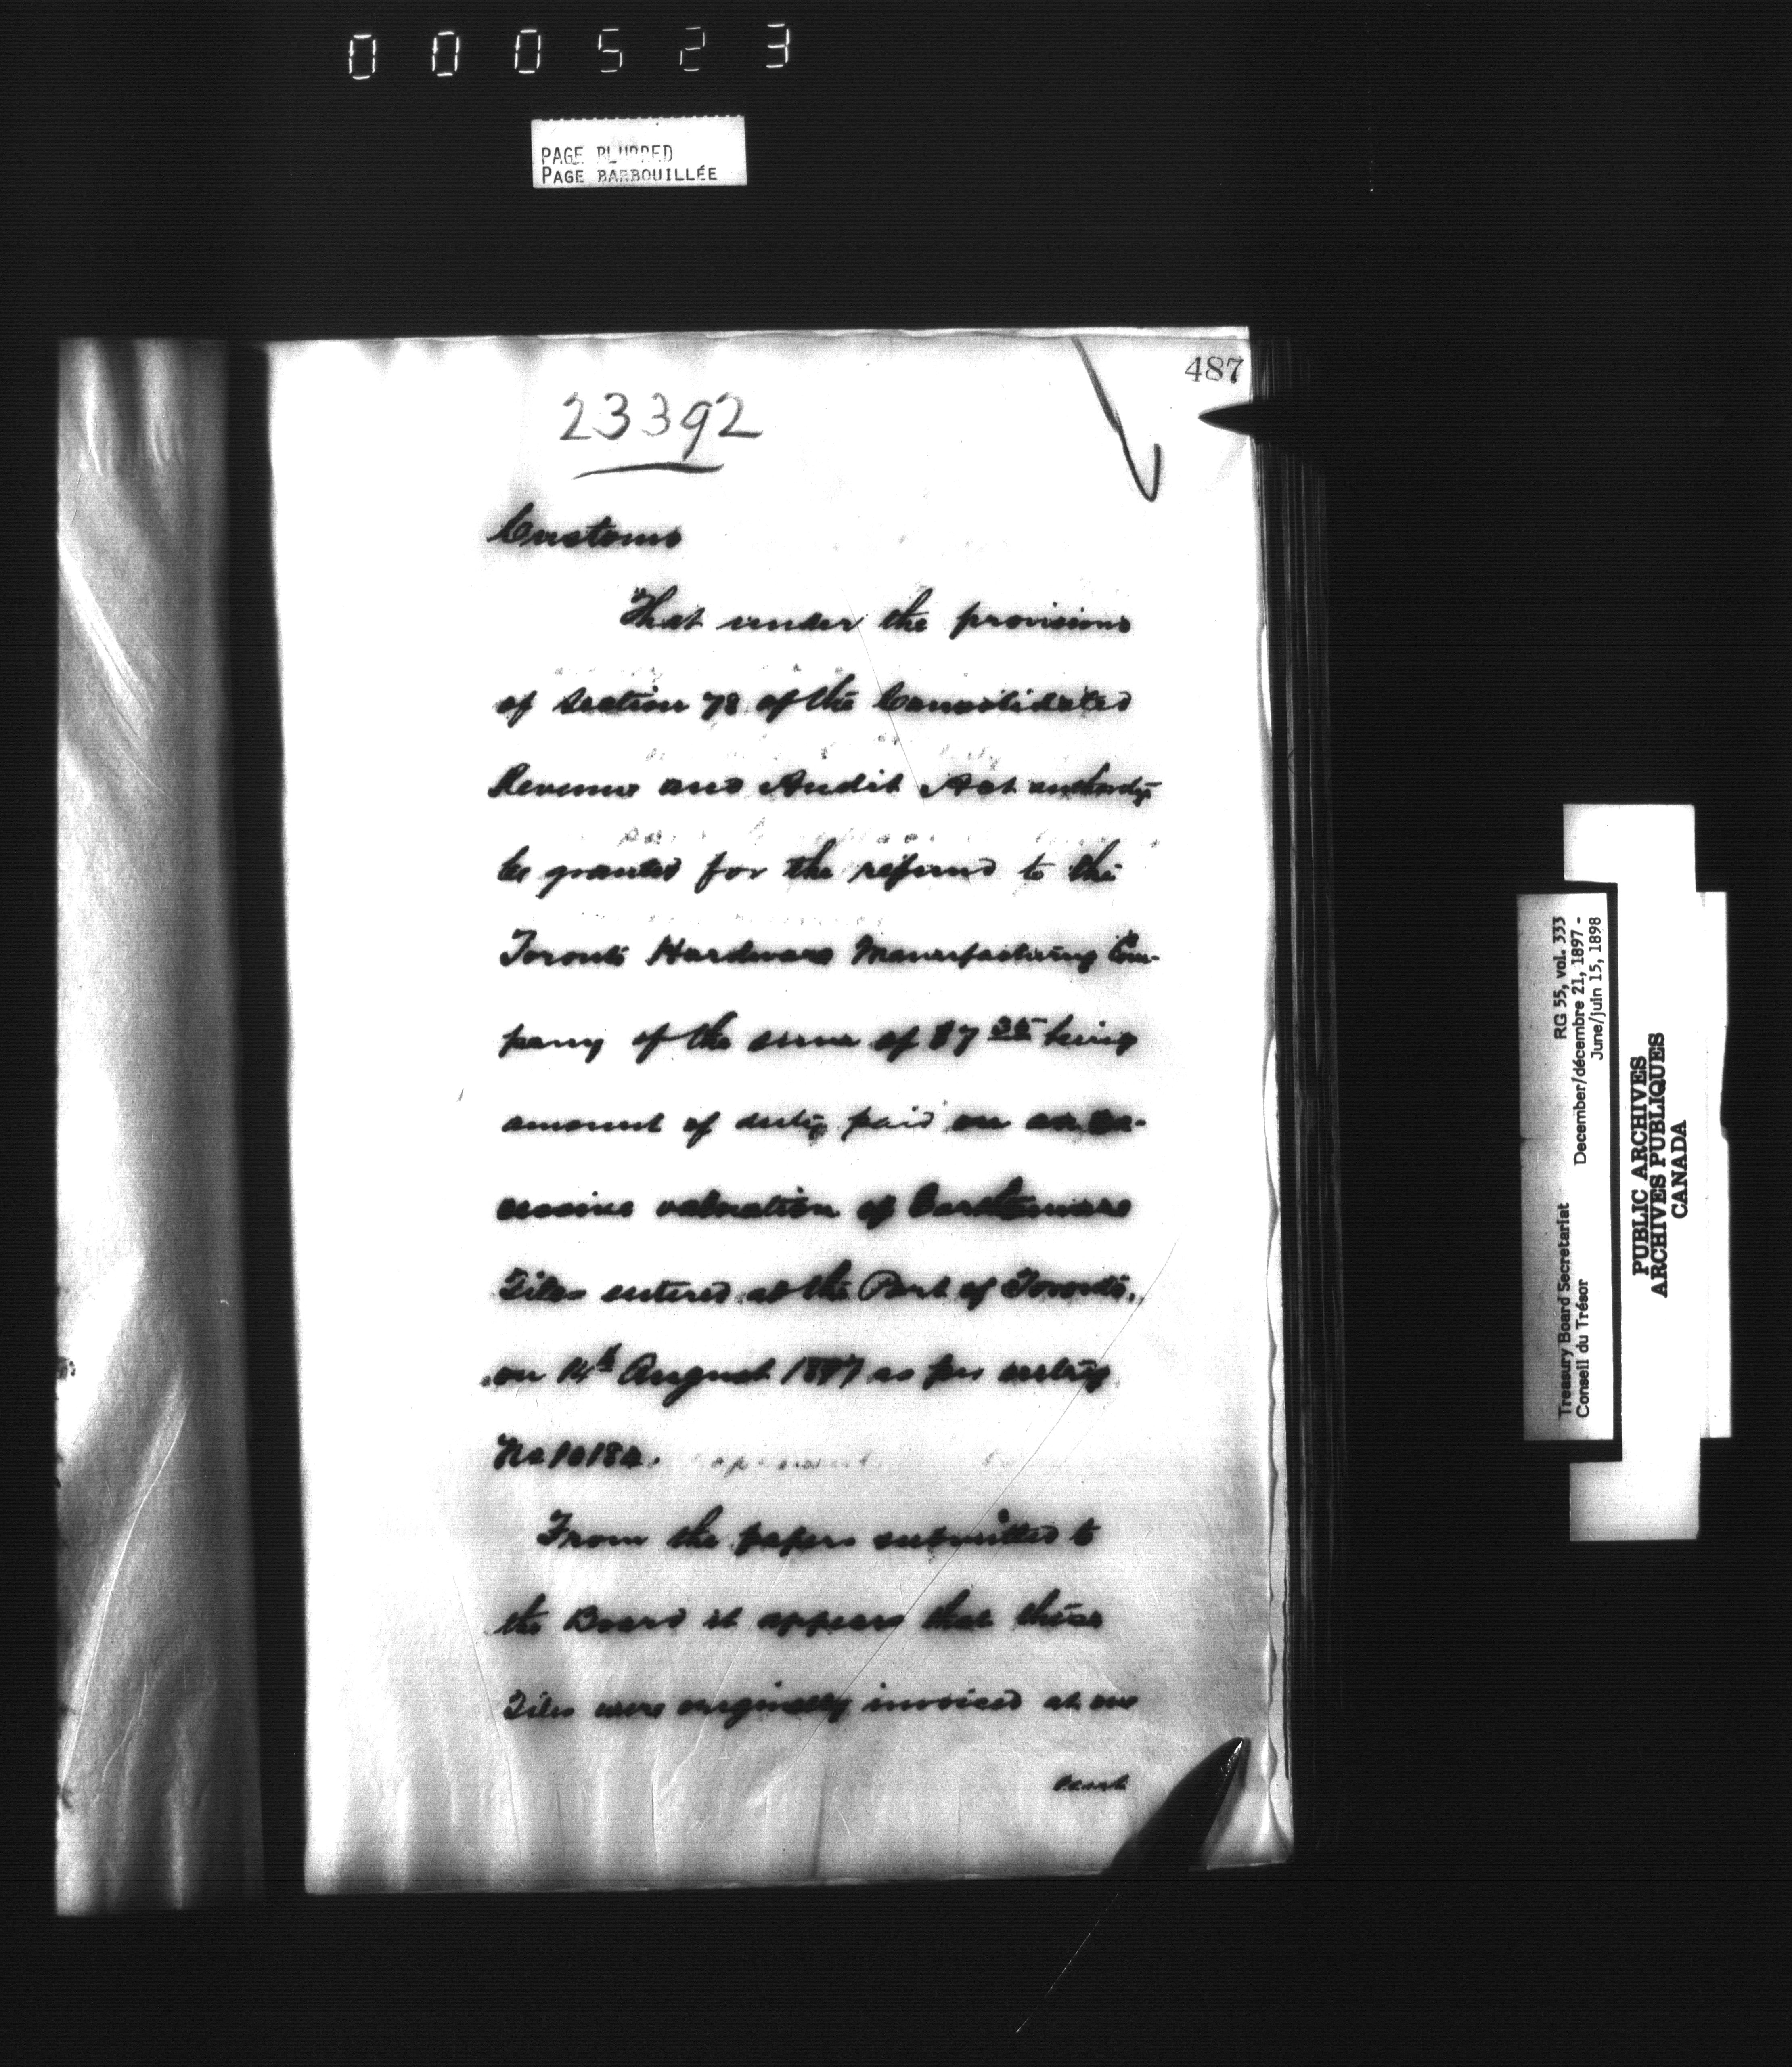 000523
PAGE BLURRED
PAGE BARBOUILLÉE
487
23392
Customs
That under the provisions
of section 78 of the Consolidated
Revenue and Audit Act authority
be granted for the refund to the
Toronto Hardware Manufacturing Com-
pany of the sum of $7 35 being
amount of duty paid on an ex-
cessive valuation of Earthenware
Tiles entered at the Port of Toronto,
on 14th August 1897 as per entry
No
From the papers submitted to
the Board it appears that these
Tiles were originally invoiced at one
cent
Treasury Board Secretariat RG 55, vol. 333
Conseil du Trésor December/décembre 21, 1897 -
June/juin 15, 1898
PUBLIC ARCHIVES
ARCHIVES PUBLIQUES
CANADA